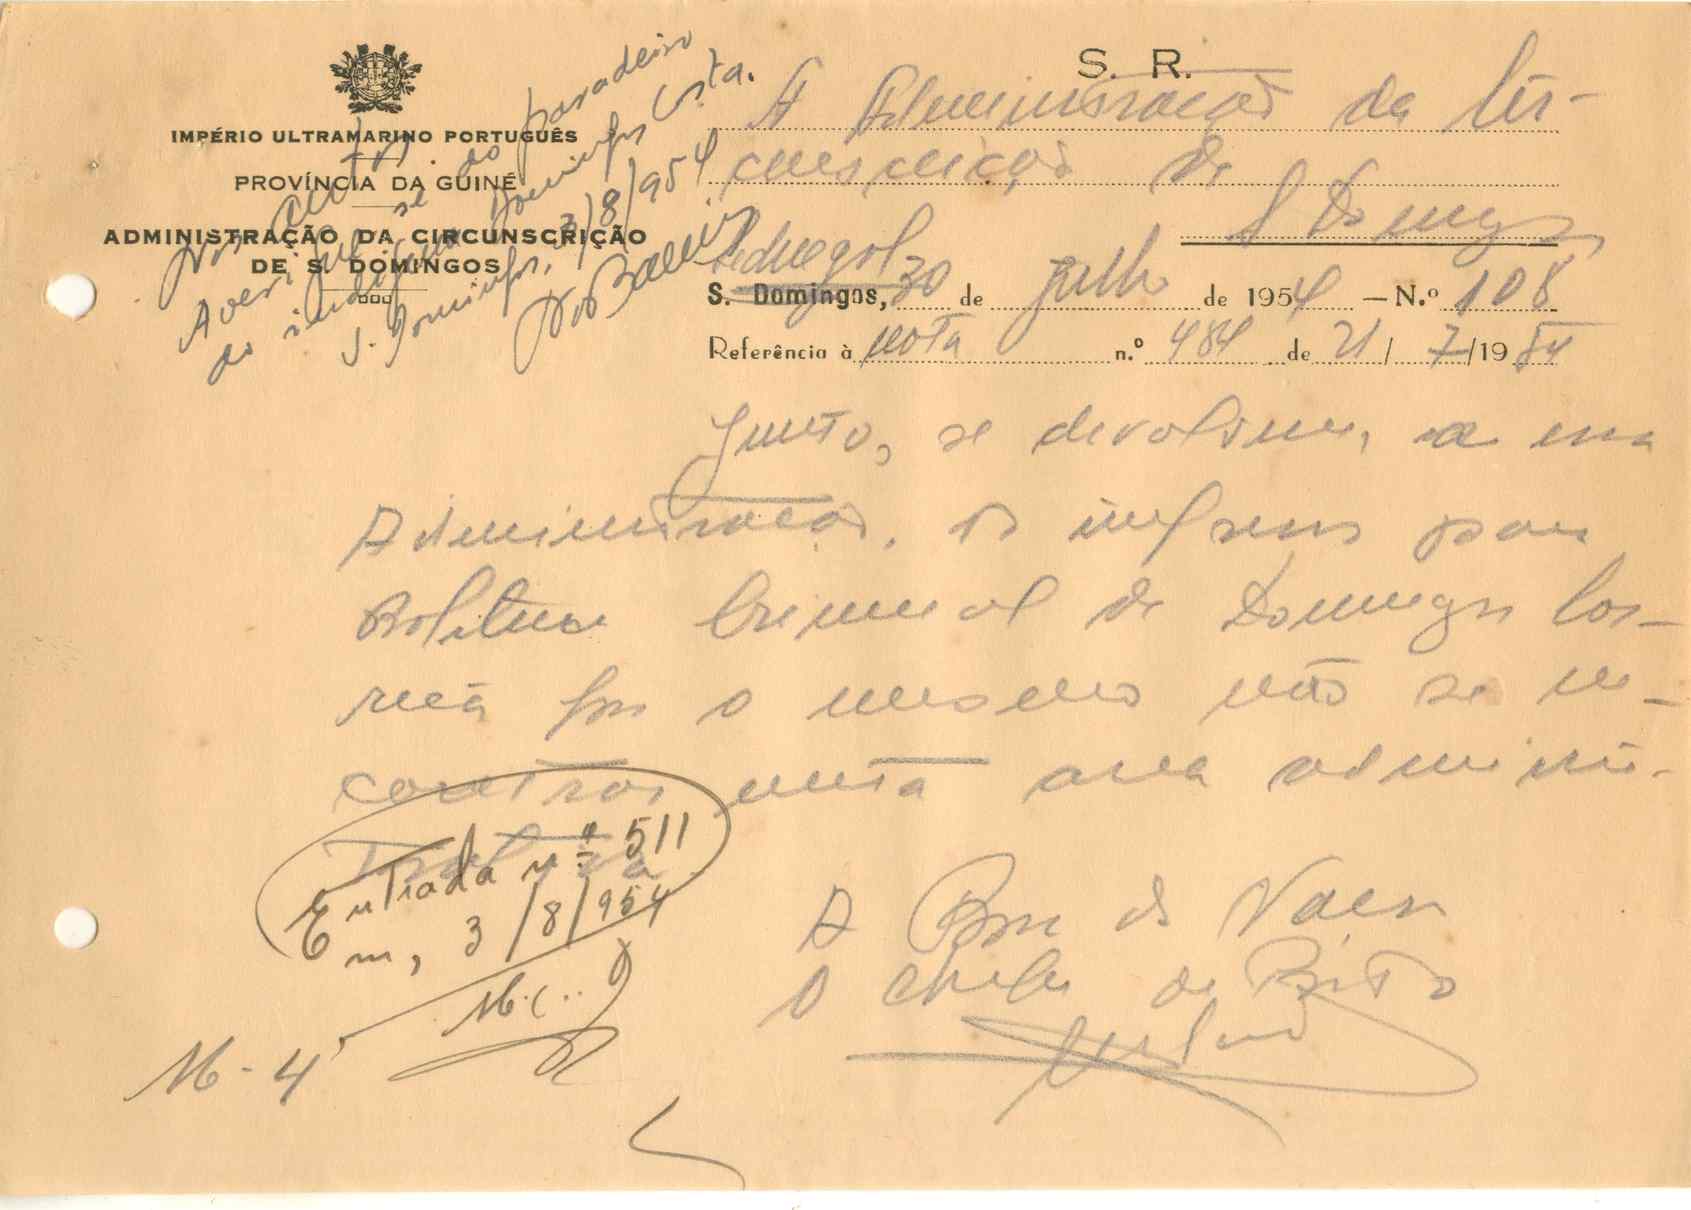 S. R.
IMPÉRIO ULTRAMARINO PORTUGUÊS
PROVÍNCIA DA GUINÉ
ADMINISTRAÇÃO DA CIRCUNSCRIÇÃO
DE S. DOMINGOS
Averigue se do paradeiro
do indígena Domingos Costa.
S. Domingos, 3/8/954
A Administração da Cir-
cunscrição de
S Domingos
S. Domingos, 30 de julho de 1954 — N.º 108
Referência à nota n.º 484 de 21/7/1954
Junto, se devolvem, a essa
Administração, os impressos para
Boletim Criminal de Domingos Cor-
reia por o mesmo não se en-
contrar nesta area adminis-
trativa
A Bem da Nação
O Chefe de Posto
Entrada nº 511
Em, 3/8/954
M.C..
M-4